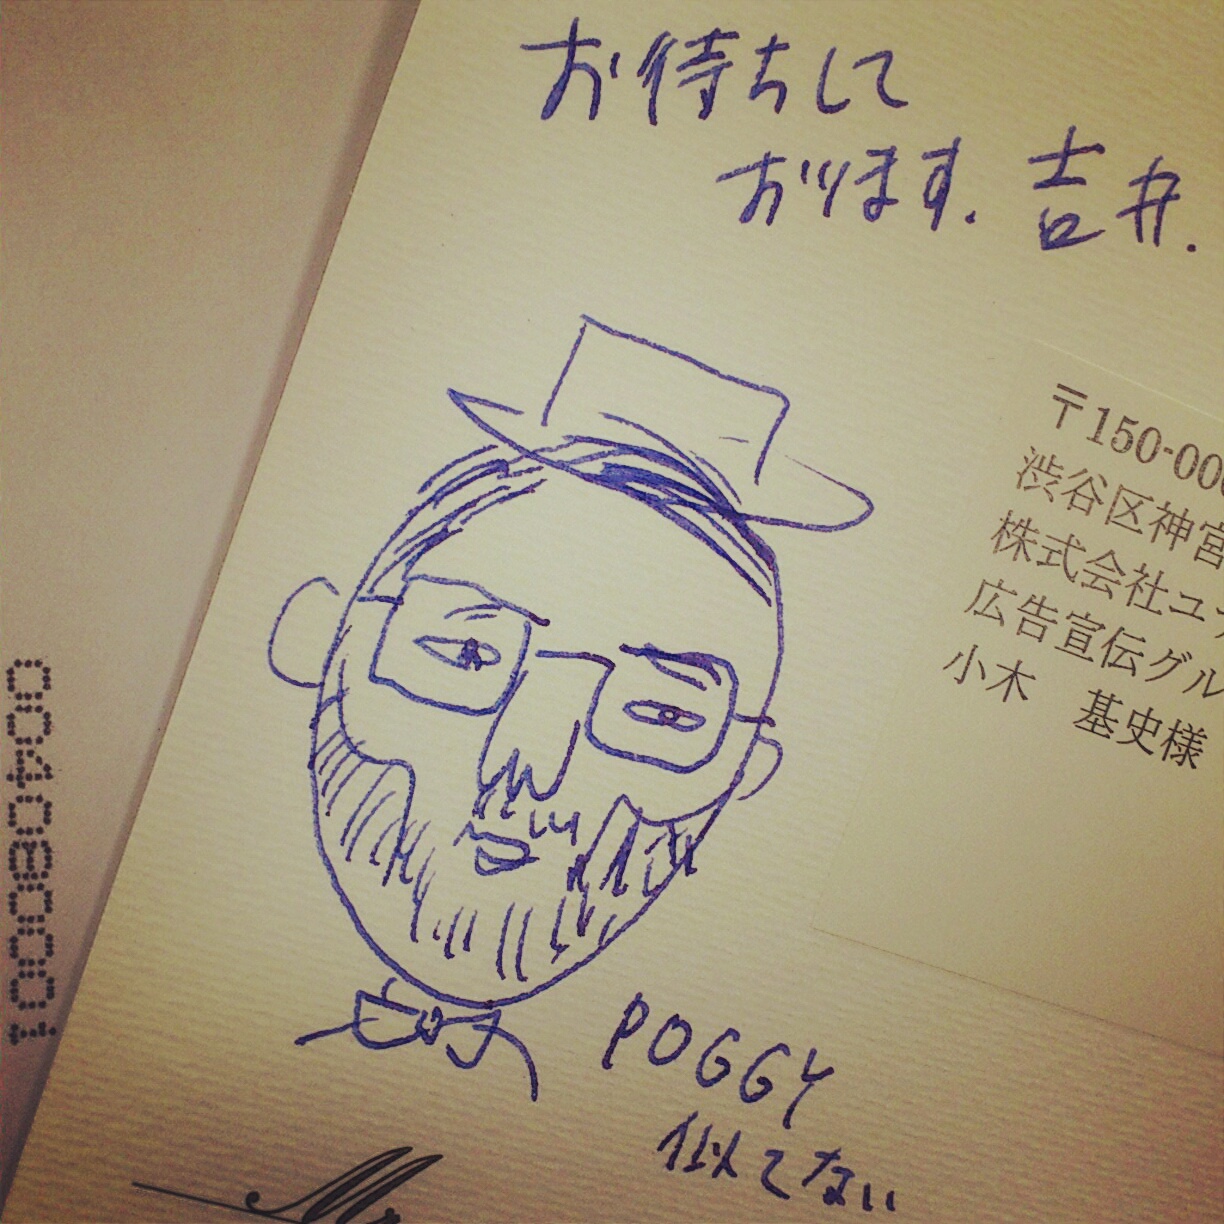 お待ちして
おります. 吉井.
〒150-000
渋谷区神宮
株式会社ユナ
広告宣伝グル
小木 基史様
POGGY
似てない
Mr
004080001